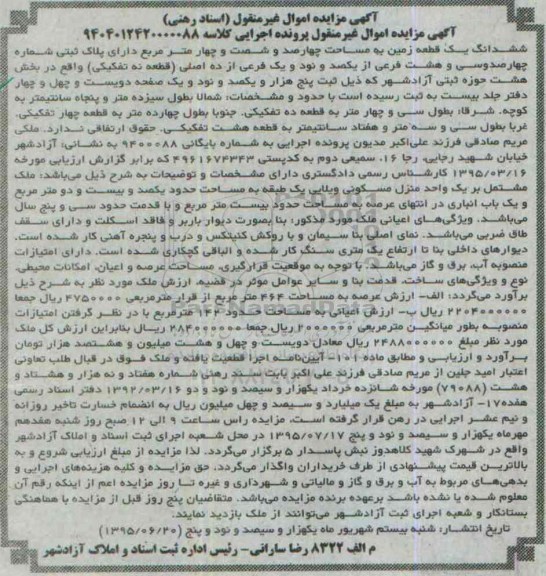 آگهی مزایده اموال غیرمنقول (اسناد رهنی)
آگهی مزایده اموال غیرمنقول پرونده اجرایی کلاسه ۹۴۰۴۰۱۲۴۲۰۰۰۰۰۸۸
ششدانگ یک قطعه زمین به مساحت چهارصد و شصت و چهار متر مربع دارای پلاک ثبتی شماره
چهارصدوسی و هشت فرعی از یکصد و نود و یک فرعی از ده اصلی (قطعه نه تفکیکی) واقع در بخش
هشت حوزه ثبتی آزادشهر که ذیل ثبت پنج هزار و یکصد و نود و یک صفحه دویست و چهل و چهار
دفتر جلد بیست به ثبت رسیده است با حدود و مشخصات: شمالا بطول سیزده متر و پنجاه سانتیمتر به
کوچه. شرقا: بطول سی و چهار متر به قطعه ده تفکیکی. جنوبا بطول چهارده متر به قطعه چهار تفکیکی.
غربا بطول سی و سه متر و هفتاد سانتیمتر به قطعه هشت تفکیکی. حقوق ارتفاقی ندارد. ملکی
مریم صادقی فرزند علی‌اکبر مدیون پرونده اجرایی به شماره بایگانی ۹۴۰۰۰۸۸ به نشانی: آزادشهر
خیابان شهید رجایی، رجا ۱۶، سمیعی دوم به کدپستی ۴۹۶۱۶۷۴۳۴۳ که برابر گزارش ارزیابی مورخه
۱۳۹۵/۰۳/۱۶ کارشناس رسمی دادگستری دارای مشخصات و توضیحات به شرح ذیل می‌باشد: ملک
مشتمل بر یک واحد منزل مسکونی ویلایی یک طبقه به مساحت حدود یکصد و بیست و دو متر مربع
و یک باب انباری در انتهای عرصه به مساحت حدود بیست متر مربع و با قدمت حدود سی و پنج سال
می‌باشد. ویژگی‌های اعیانی ملک مورد مذکور: بنا بصورت دیوار باربر و فاقد اسکلت و دارای سقف
طاق ضربی می‌باشد. نمای اصلی بنا سیمان و با روکش کنیتکس و درب و پنجره آهنی کار شده است.
دیوارهای داخلی بنا تا ارتفاع یک متری سنگ کار شده و الباقی گچکاری شده است. دارای امتیازات
منصوبه آب، برق و گاز می‌باشد. با توجه به موقعیت قرارگیری، مساحت عرصه و اعیان، امکانات محیطی،
نوع و ویژگی‌های ساخت، قدمت بنا و سایر عوامل موثر در قضیه، ارزش ملک مورد نظر به شرح ذیل
برآورد می‌گردد: الف- ارزش عرصه به مساحت ۴۶۴ متر مربع از قرار مترمربعی ۴۷۵۰۰۰۰ ریال جمعا
۲۲۰۴۰۰۰۰۰۰ ریال ب- ارزش اعیانی به مساحت حدود ۱۴۲ مترمربع با در نظر گرفتن امتیازات
منصوبه بطور میانگین مترمربعی ۲۰۰۰۰۰۰ ریال جمعا ۲۸۴۰۰۰۰۰۰ ریال بنابراین ارزش کل ملک
مورد نظر مبلغ ۲۴۸۸۰۰۰۰۰۰ ریال معادل دویست و چهل و هشت میلیون و هشتصد هزار تومان
برآورد و ارزیابی و مطابق ماده ۱۰۱ آیین‌نامه اجرا قطعیت یافته و ملک فوق در قبال طلب تعاونی
اعتبار امید جلین از مریم صادقی فرزند علی اکبر بابت سند رهنی شماره هفتاد و نه هزار و هشتاد و
هشت (۷۹۰۸۸) مورخه شانزده خرداد یکهزار و سیصد و نود و دو ۱۳۹۲/۰۳/۱۶ دفتر اسناد رسمی
هفده۱۷- آزادشهر به مبلغ یک میلیارد و سیصد و چهل میلیون ریال به انضمام خسارت تاخیر روزانه
و نیم عشر اجرایی در رهن قرار گرفته است، مزایده راس ساعت ۹ الی ۱۲ صبح روز شنبه هفدهم
مهرماه یکهزار و سیصد و نود و پنج ۱۳۹۵/۰۷/۱۷ در محل شعبه اجرای ثبت اسناد و املاک آزادشهر
واقع در شهرک شهید کلاهدوز نبش پاسدار ۵ برگزار می‌گردد. لذا مزایده از مبلغ ارزیابی شروع و به
بالاترین قیمت پیشنهادی از طرف خریداران واگذار می‌گردد. حق مزایده و کلیه هزینه‌های اجرایی و
بدهی‌های مربوط به آب و برق و گاز و مالیاتی و شهرداری و غیره تا روز مزایده اعم از اینکه رقم آن
معلوم شده یا نشده باشد برعهده برنده مزایده می‌باشد. متقاضیان پنج روز قبل از مزایده با هماهنگی
بستانکار و شعبه اجرای ثبت آزادشهر می‌توانند از ملک بازدید نمایند.
تاریخ انتشار: شنبه بیستم شهریور ماه یکهزار و سیصد و نود و پنج (۱۳۹۵/۰۶/۲۰)
م الف ۸۳۲۲ رضا سارانی- رئیس اداره ثبت اسناد و املاک آزادشهر